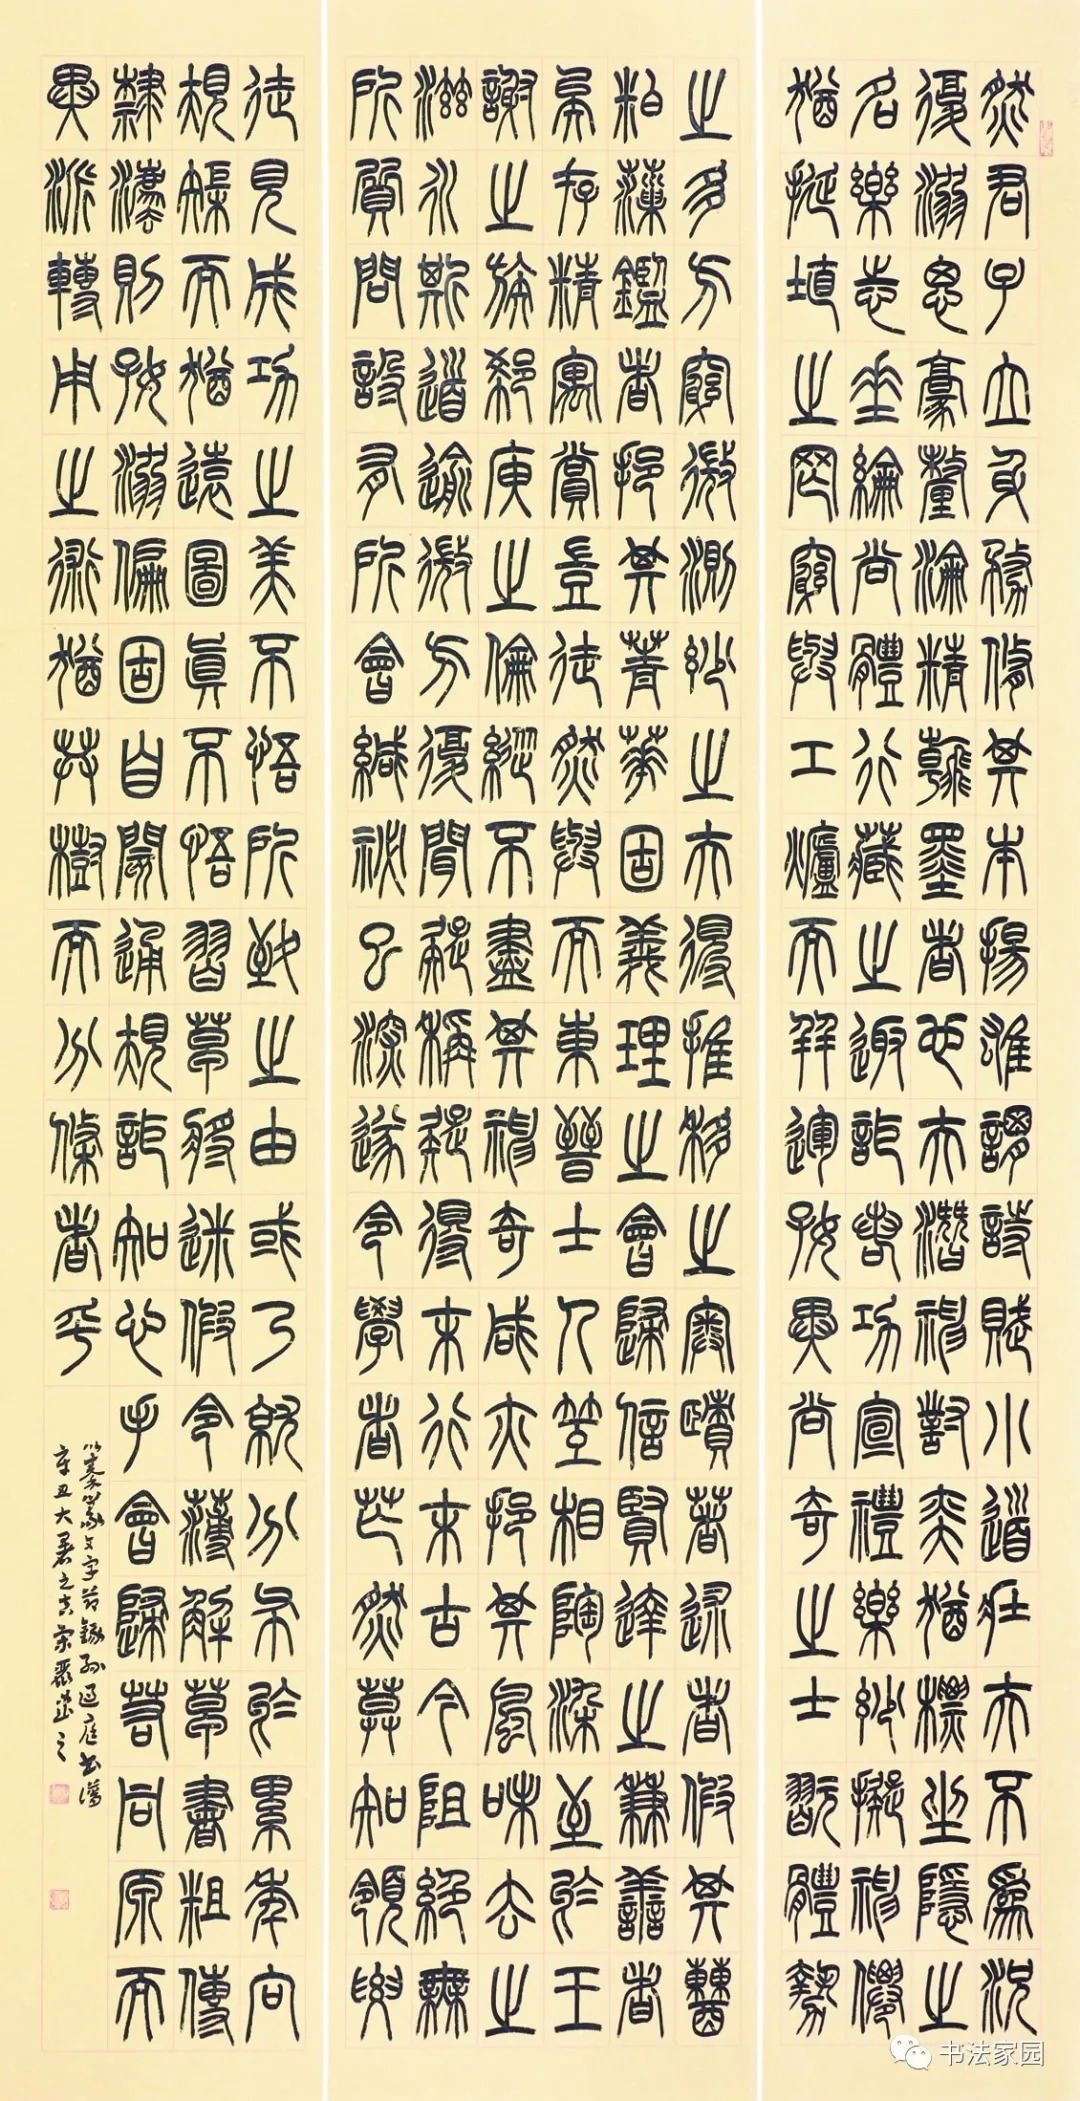 然君子立身務修其本揚雄謂詩賦小道壯夫不為況
復溺思豪釐淪精翰墨者也夫潛神對奕猶標坐隱之
名樂志垂綸尚體行藏之趣詎若功宣禮樂妙擬神仙
猶埏埴之罔窮與工爐而並運好異尚奇之士翫體勢
之多方窮微測妙之夫得推移之奧賾著述者假其糟
粕藻鑑者挹其菁華固義理之會歸信賢達之兼善者
矣存精寓賞豈徒然與而東晉士人互相陶淬至於王
謝之族郗庾之倫縱不盡其神奇咸亦挹其風味去之
滋永斯道逾微方復聞疑稱疑得末行末古今阻絕無
所質問設有所會緘秘已深遂令學者茫然莫知領要
徒見成功之美不悟所致之由或乃就分布於累年向
規矩而猶遠圖真不悟習草將迷假令薄解草書粗傳
隸法則好溺偏固自閡通規詎知心手會歸若同原而
異派轉用之術猶共樹而分條者乎
以秦篆文字節錄孫過庭書譜
辛丑大暑之吉
书法家园